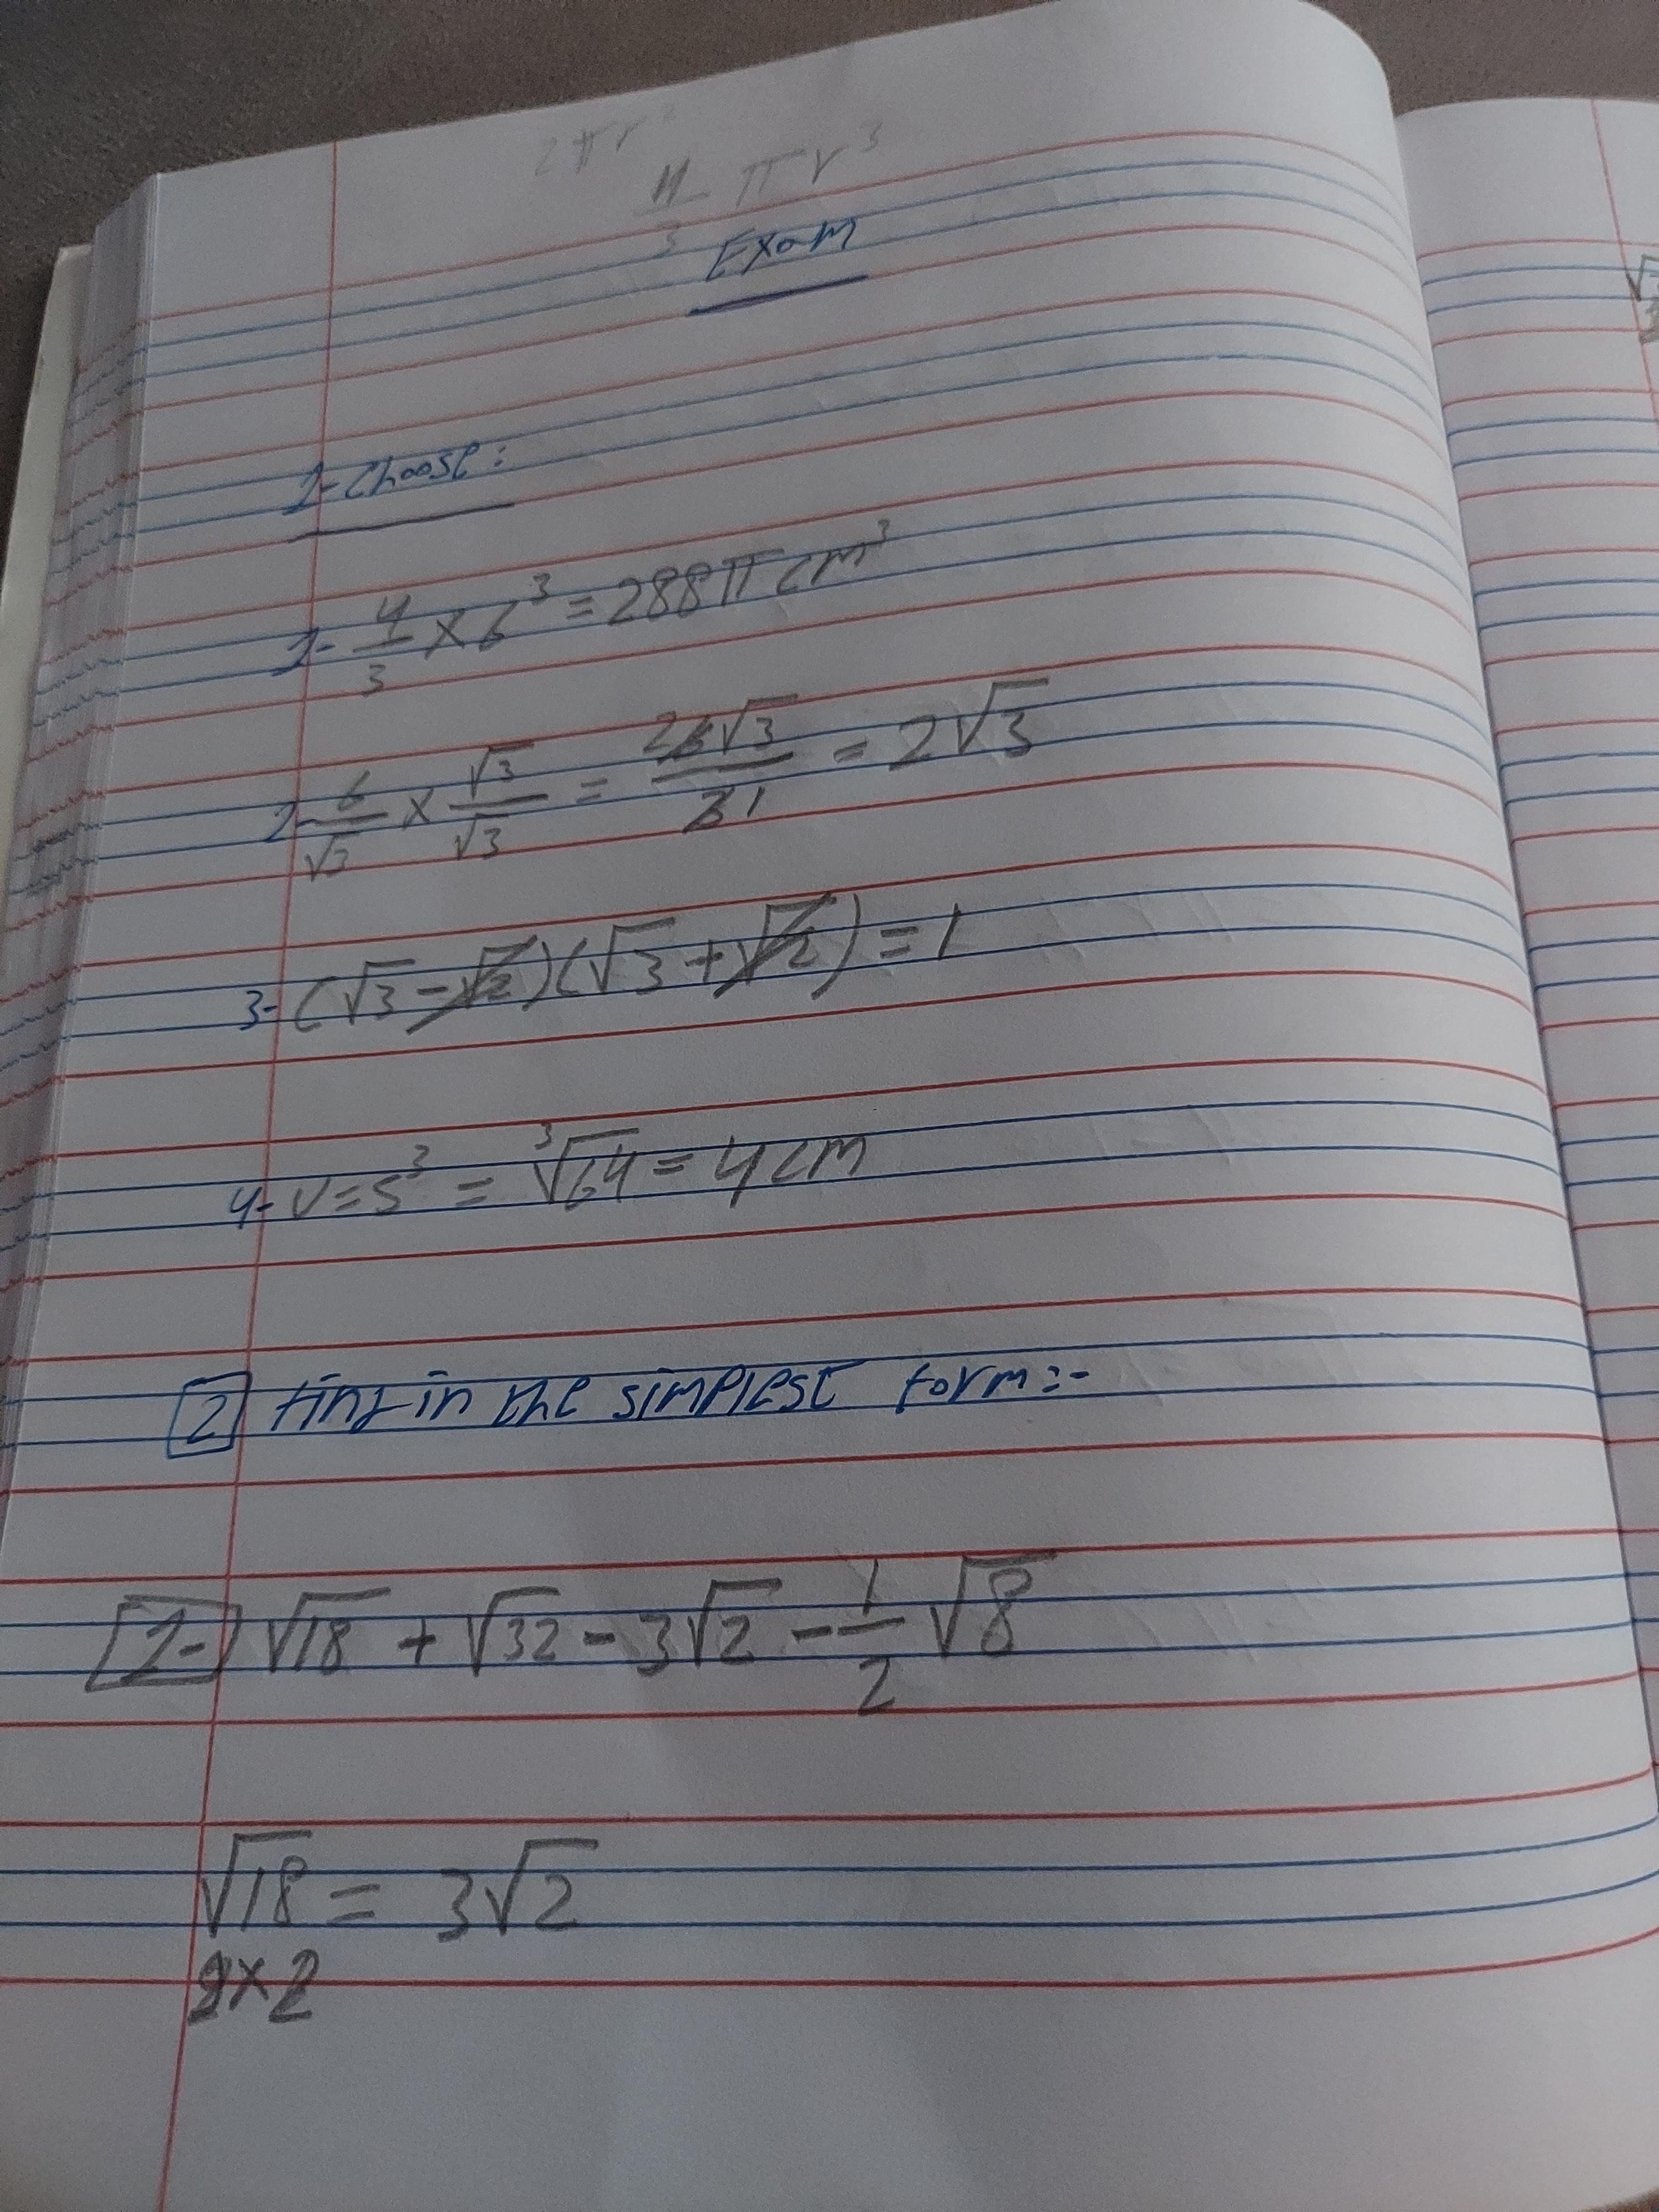 2πr²
4/3 πr³
Exam
1- Choose:
1- 4/3 × 6³ = 288π cm³
2- 6/√3 × √3/√3 = 26√3/31 = 2√3
3- (√3 - √2)(√3 + √2) = 1
4- V = S³ = ³√64 = 4cm
2 find in the simplest form:-
1- √18 + √32 - 3√2 - 1/2 √8
√18 = 3√2
9×2